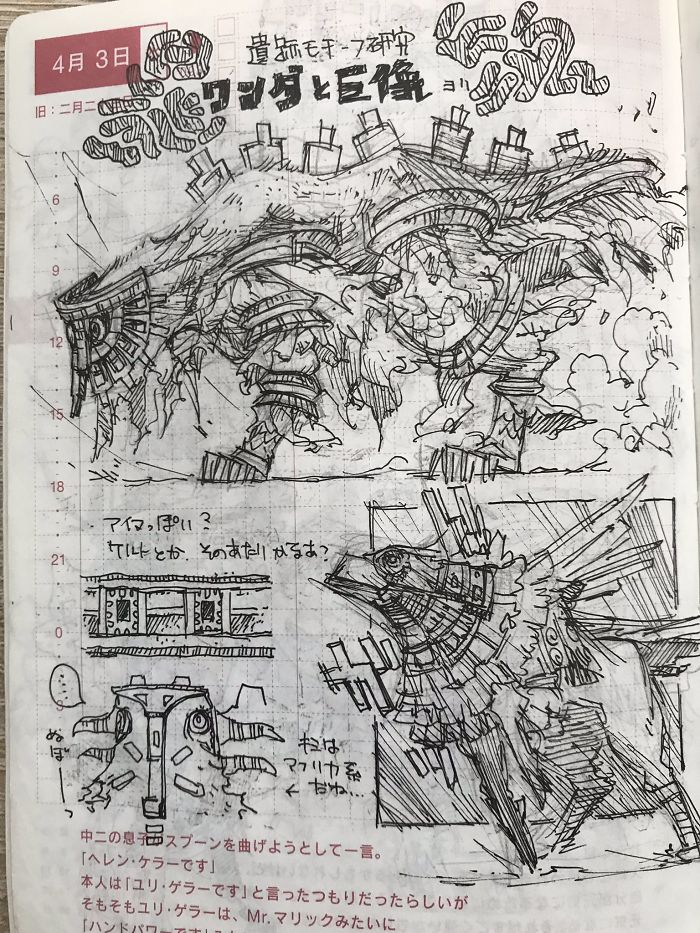 4月 3日
遺跡モチーフ研究
旧:二月二
ワンダと巨像 ヨリ
6
9
12
15
18
21
0
3
アイヌっぽい?
ケルトとか、そのあたりかなあっ
……
ぬぼー
キミは
アフリカ系
← だね…
中二の息子 スプーンを曲げようとして一言。
「ヘレン・ケラーです」
本人は「ユリ・ゲラーです」と言ったつもりだったらしいが
そもそもユリ・ゲラーは、Mr.マリックみたいに
「ハンドパワーです」